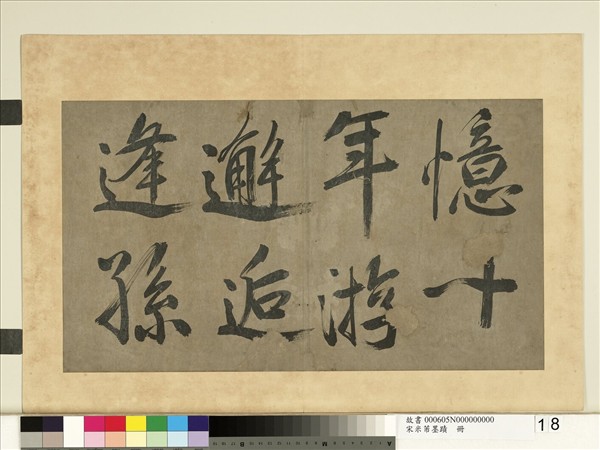 憶十
年游
邂逅
逢孫
故書 000605N000000000
宋米芾墨蹟　冊
18